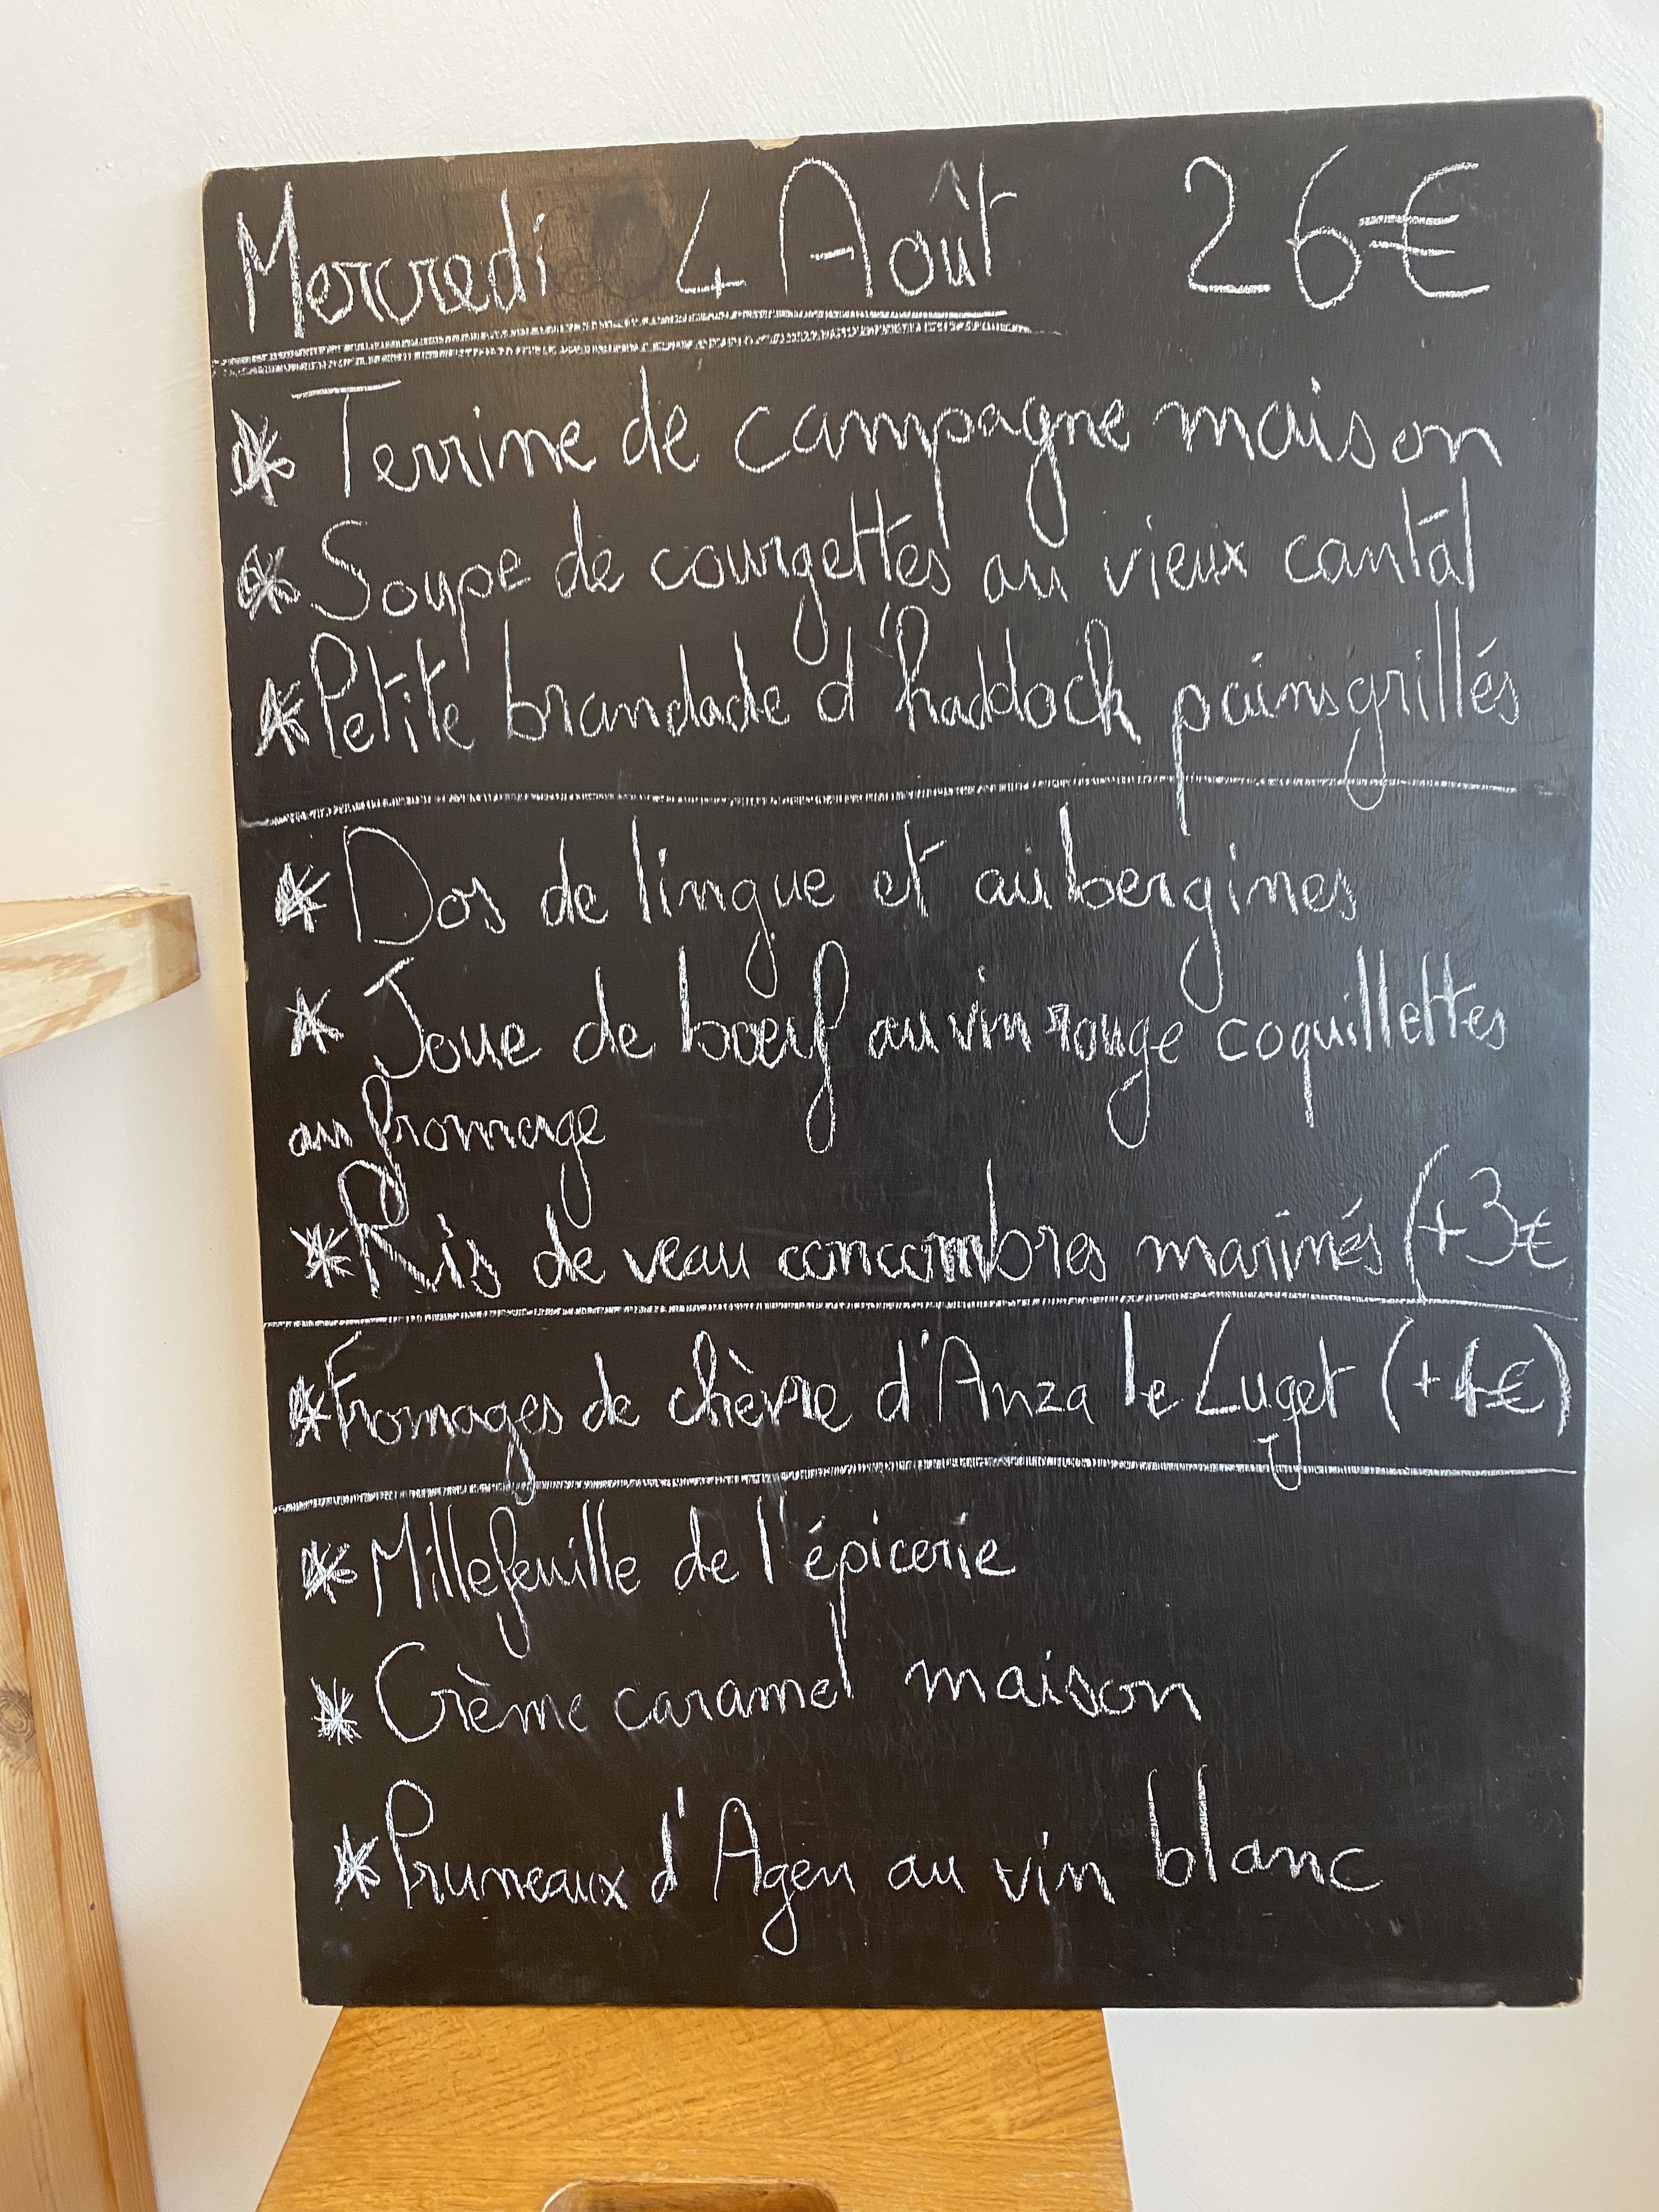 Mercredi 4 Août 26€
* Terrine de campagne maison
* Soupe de courgettes au vieux cantal
* Petite brandade d'haddock pains grillés
* Dos de lingue et aubergines
* Joue de bœuf au vin rouge coquillettes
au fromage
* Ris de veau concombres marinés (+3€
* Fromages de chèvre d'Anza le Luget (+4€)
* Millefeuille de l'épicerie
* Crème caramel maison
* Pruneaux d'Agen au vin blanc